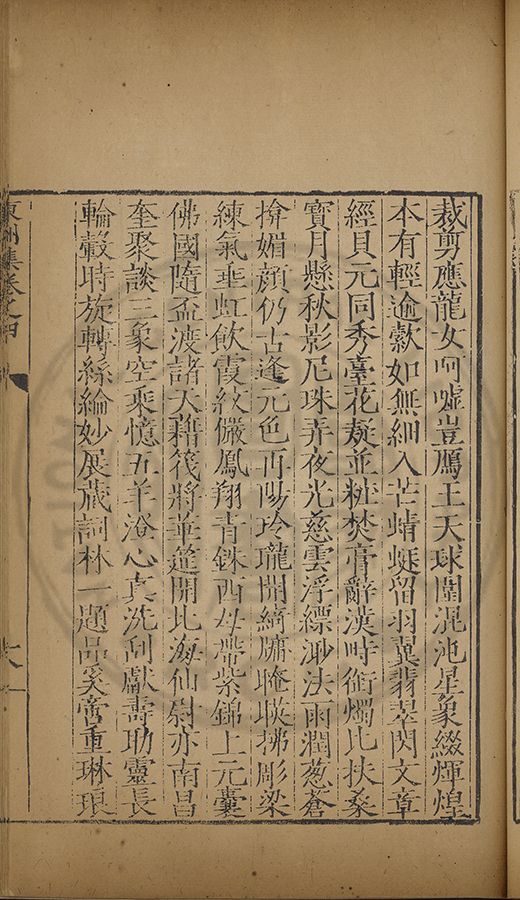 裁剪應龍女呵噓豈鴈王天球開混沌星象綴輝煌
本有輕逾歘如無細入芒蜻蜓留羽翼翡翠閃文章
經貝元同秀臺花疑並粧焚膏辭漢時銜燭比扶桑
寶月懸秋影尼珠弄夜光慈雲浮縹渺法雨潤蔥蒼
揜媚顏仍古逢元色再陽玲瓏開綺牖晻暎拂彫梁
練氣垂虹飲霞紋儼鳳翔青銖西母帶紫錦上元囊
佛國隨盃渡諸天藉筏將華筵開比海仙尉亦南昌
奎聚談三象空乘憶五羊澄心真洗刮獻壽助靈長
輪轂時旋轉絲綸妙展藏詞林一題品奚啻重琳琅
東洲集卷之四